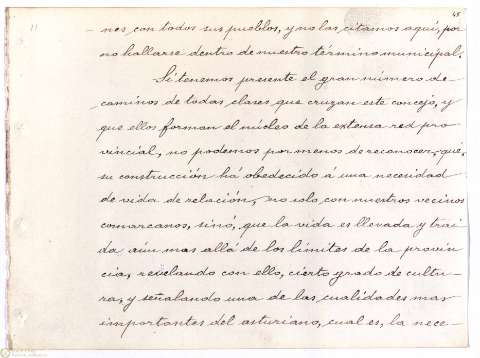 45
nes, con todos sus pueblos, y no las citamos aquí, por
no hallarse dentro de nuestro término municipal.
Si tenemos presente el gran número de
caminos de todas clases que cruzan este concejo, y
que ellos forman el núcleo de la extensa red pro
vincial, no podemos por menos de reconocer, que,
su construcción há obedecido á una necesidad
de vida de relación, no solo, con nuestros vecinos
comarcanos, sinó, que la vida es llevada y trai
da aún mas allá de los límites de la provin
cia, revelando con ello, cierto grado de cultu-
ra, y señalando una de las cualidades mas
importantes del asturiano, cual es, la nece-